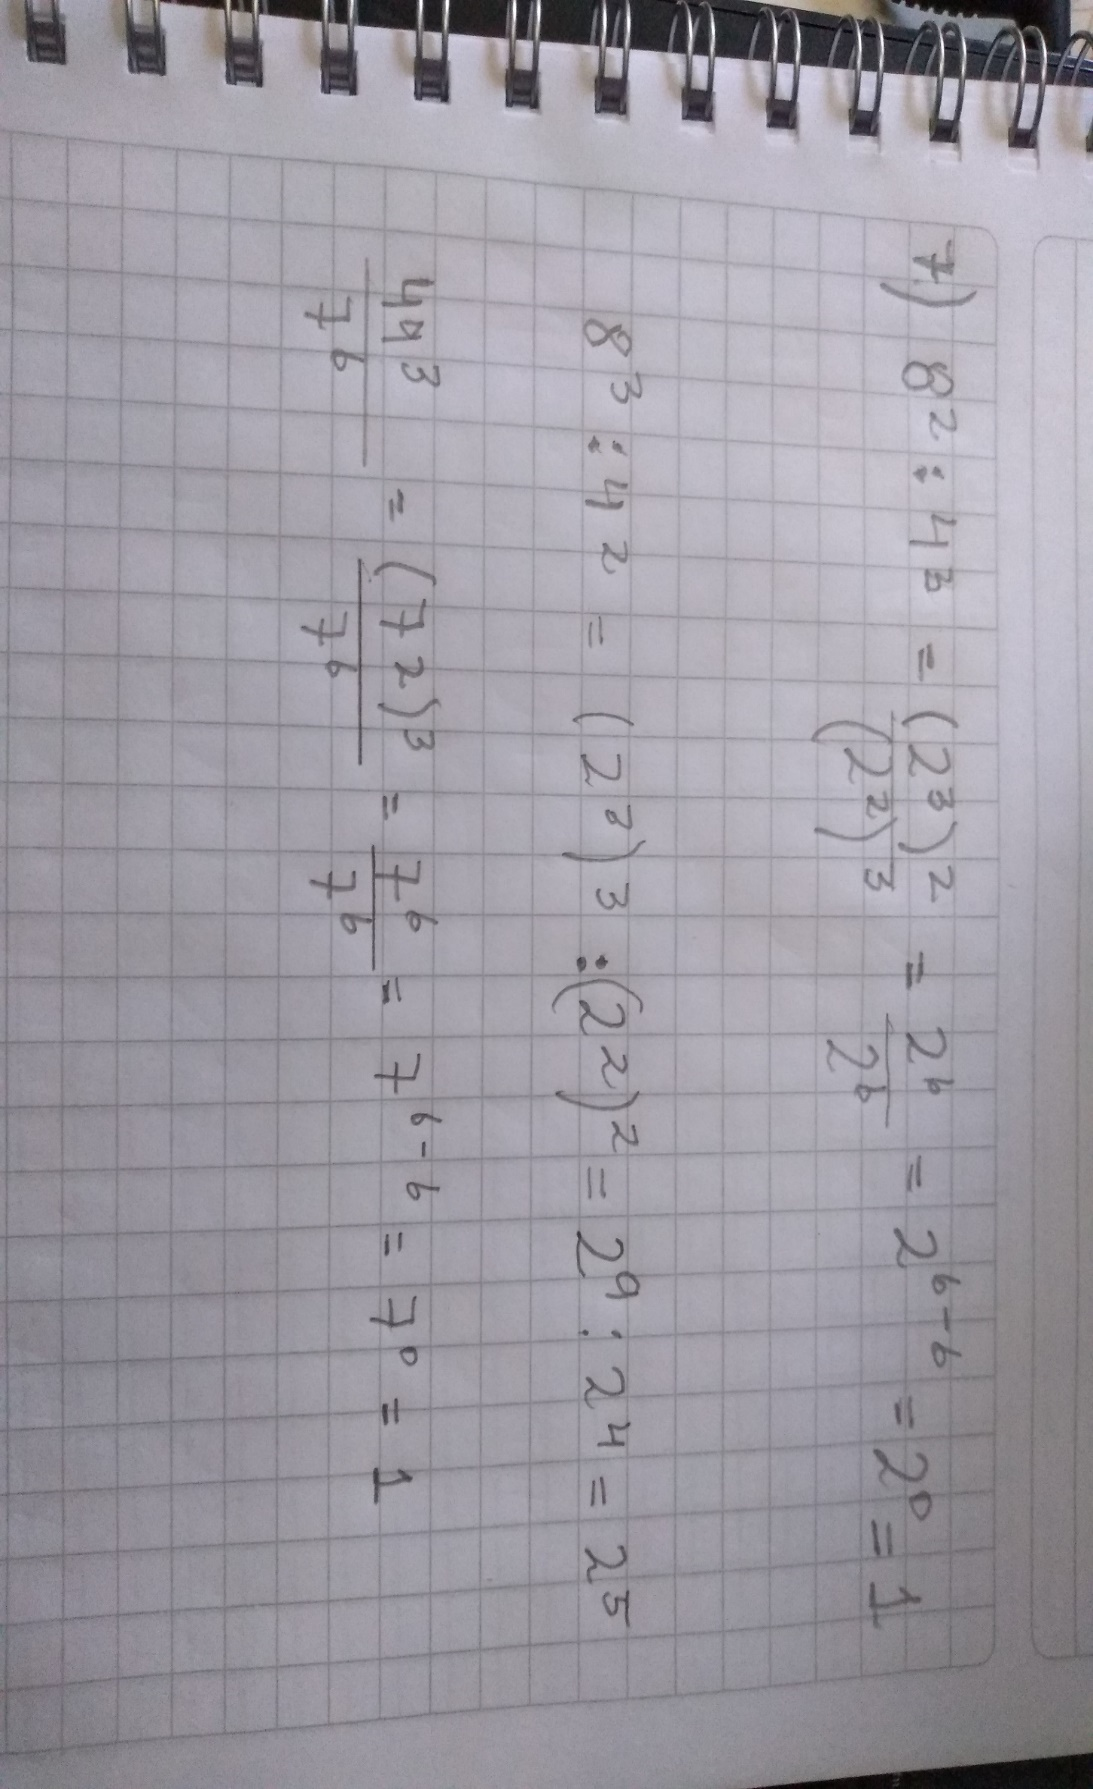 7) 8² : 4³ = (2³)²/(2²)³ = 2⁶/2⁶ = 2⁶⁻⁶ = 2⁰ = 1
8³ : 4² = (2³)³ : (2²)² = 2⁹ : 2⁴ = 2⁵
49³/7⁶ = (7²)³/7⁶ = 7⁶/7⁶ = 7⁶⁻⁶ = 7⁰ = 1